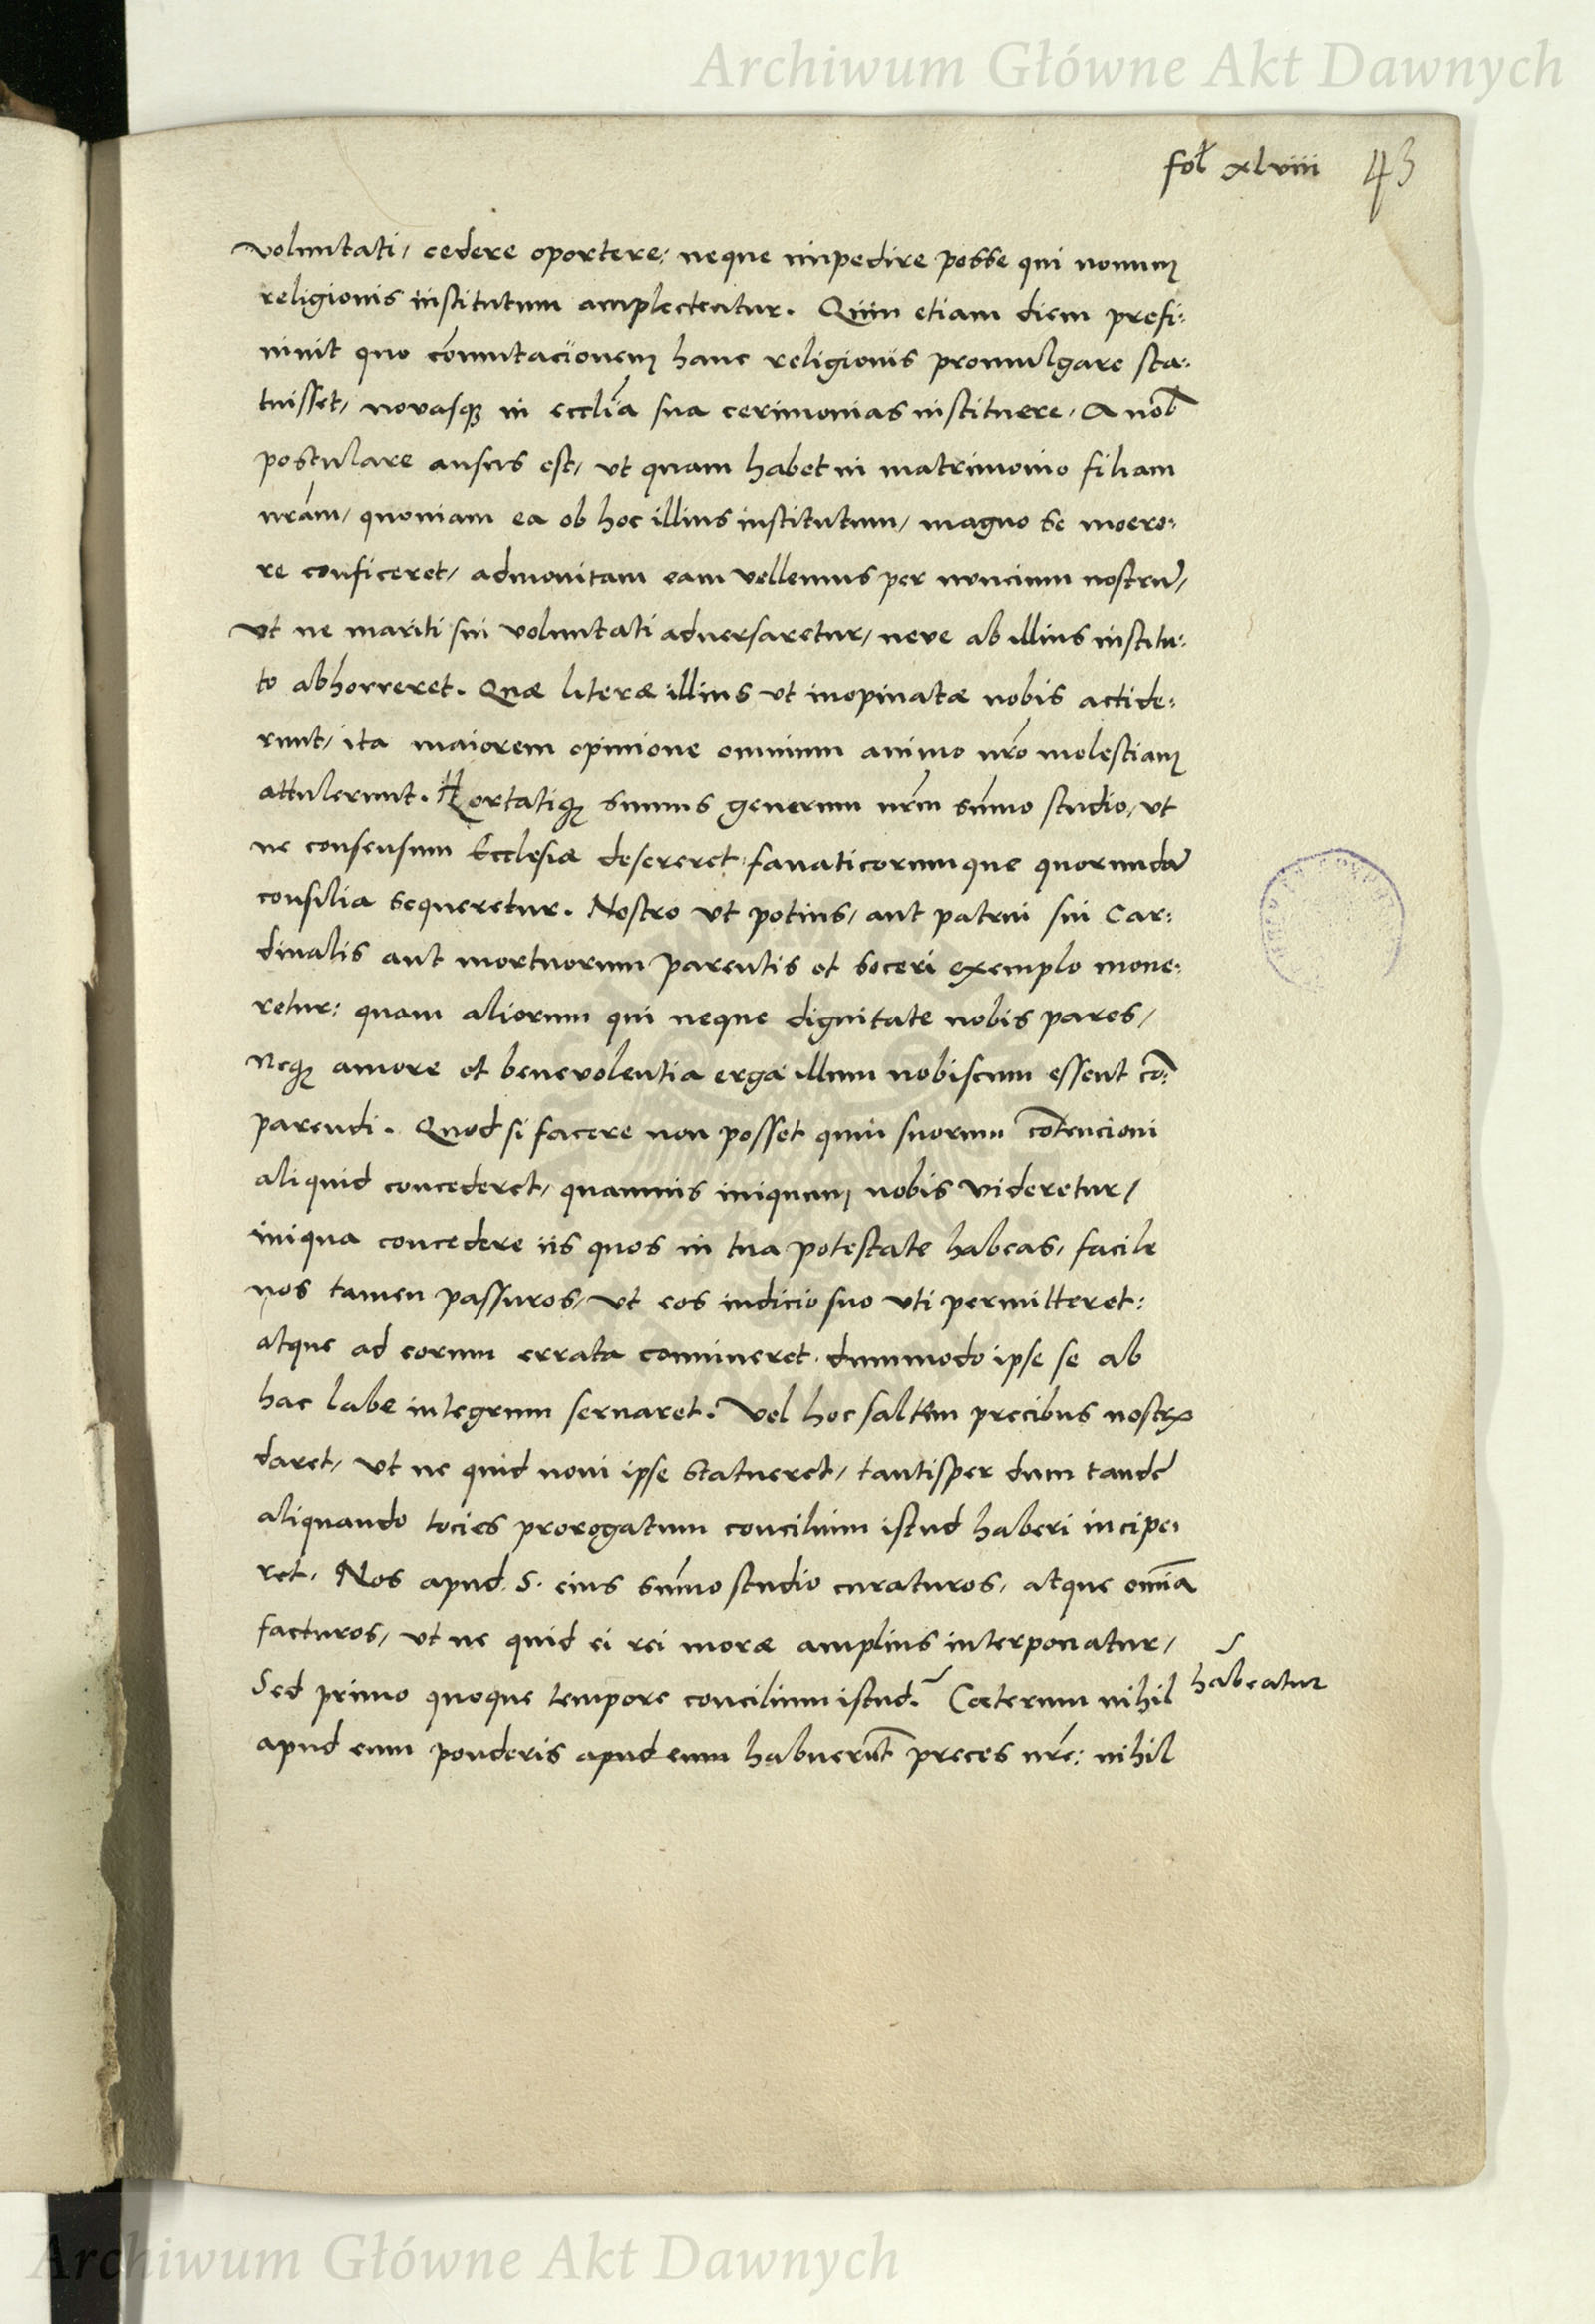 Archiwum Główne Akt Dawnych
fol xlviii 43
voluntati, cedere oportere: neque impedire posse qui nouum
religionis institutum amplectentur. Quin etiam diem prefi:
niuit quo cōmutacionem hanc religionis promulgare sta:
tuisset, novasqꝫ in eccliā sua cerimonias instituere, A nob̄
postulare ausus est, ut quam habet in matrimonio filiam
nrām, quoniam ea ob hoc illius institutum, magno se moero:
re conficeret, admonitam eam vellemus per nuncium nostrū,
Vt ne mariti sui voluntati aduersaretur, neve ab illius institu:
to abhorreret. Quæ literæ illius ut inopinatæ nobis accide:
runt, ita maiorem opinione omnium animo nrō molestiam
attulerunt. Hortatiqꝫ sumus generum nrm̄ sūmo studio, ut
ne consensum Ecclesiæ desereret, fanaticorumque quorundā
consilia sequeretur. Nostro ut potius, aut patrui sui Car:
dinalis aut mortuorum parentis et soceri exemplo mone:
retur: quam aliorum qui neque dignitate nobis pares,
neqꝫ amore et benevolentia erga illum nobiscum essent cō:
parendi. Quod si facere non posset quin suorum cōtencioni
aliquid concederet, quamuis iniquum nobis videretur,
iniqua concedere iis quos in tua potestate habeas, facile
nos tamen passuros, ut eos iudicio suo uti permitteret:
atque ad eorum errata conniueret, dummodo ipse se ab
hac labe integrum seruaret. Vel hoc saltem precibus nostrꝭ
daret, ut ne quid noui ipse statueret, tantisper dum tandē
aliquando tocies prorogatum concilium istud haberi incipe:
ret. Nos apud S. eius sūmo studio curaturos, atque omīa
facturos, ut ne quid ei rei moræ amplius interponatur,
Sed primo quoque tempore concilium istud. Cæterum nihil
habeatur
apud eum ponderis apud eum habuerūt preces nrē: nihil
Archiwum Główne Akt Dawnych